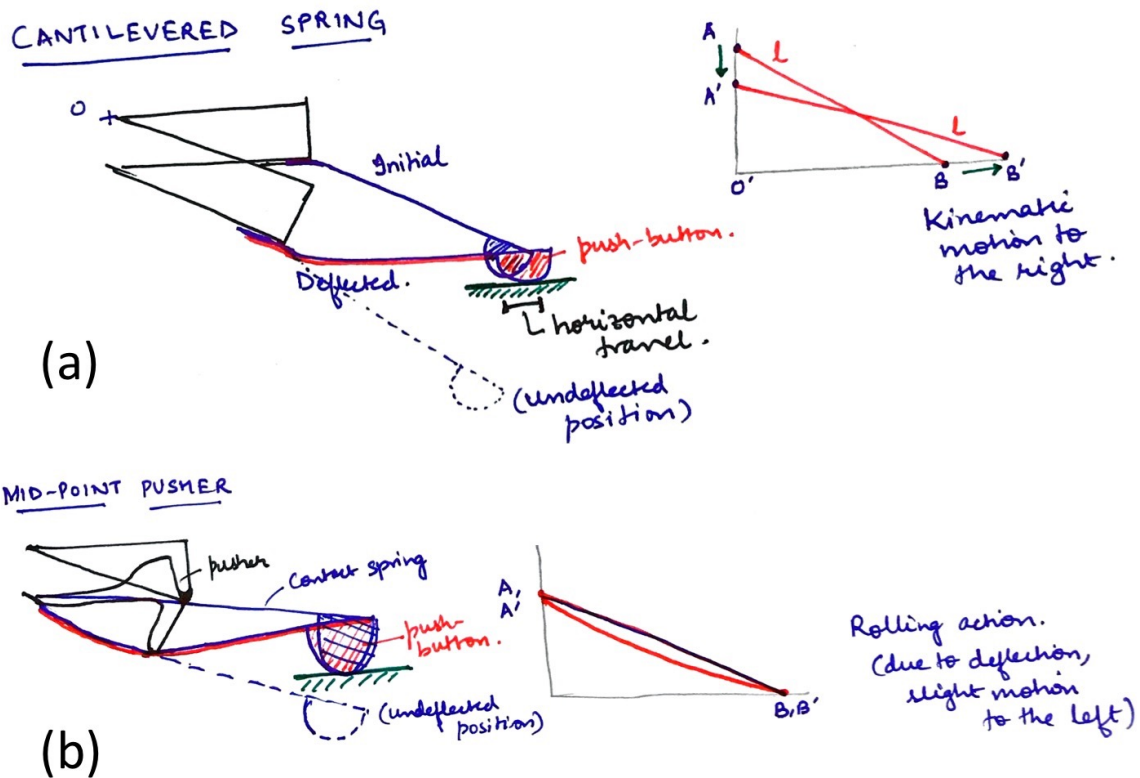 CANTILEVERED SPRING
O
Initial
push-button.
Deflected.
horizontal
travel.
(undeflected
position)
(a)
A
A'
L
L
O'
B
B'
Kinematic
motion to
the right.
MID-POINT PUSHER
pusher
Contact spring
push-
button.
(undeflected
position)
(b)
A,
A'
B,B'
Rolling action.
(due to deflection,
slight motion
to the left)